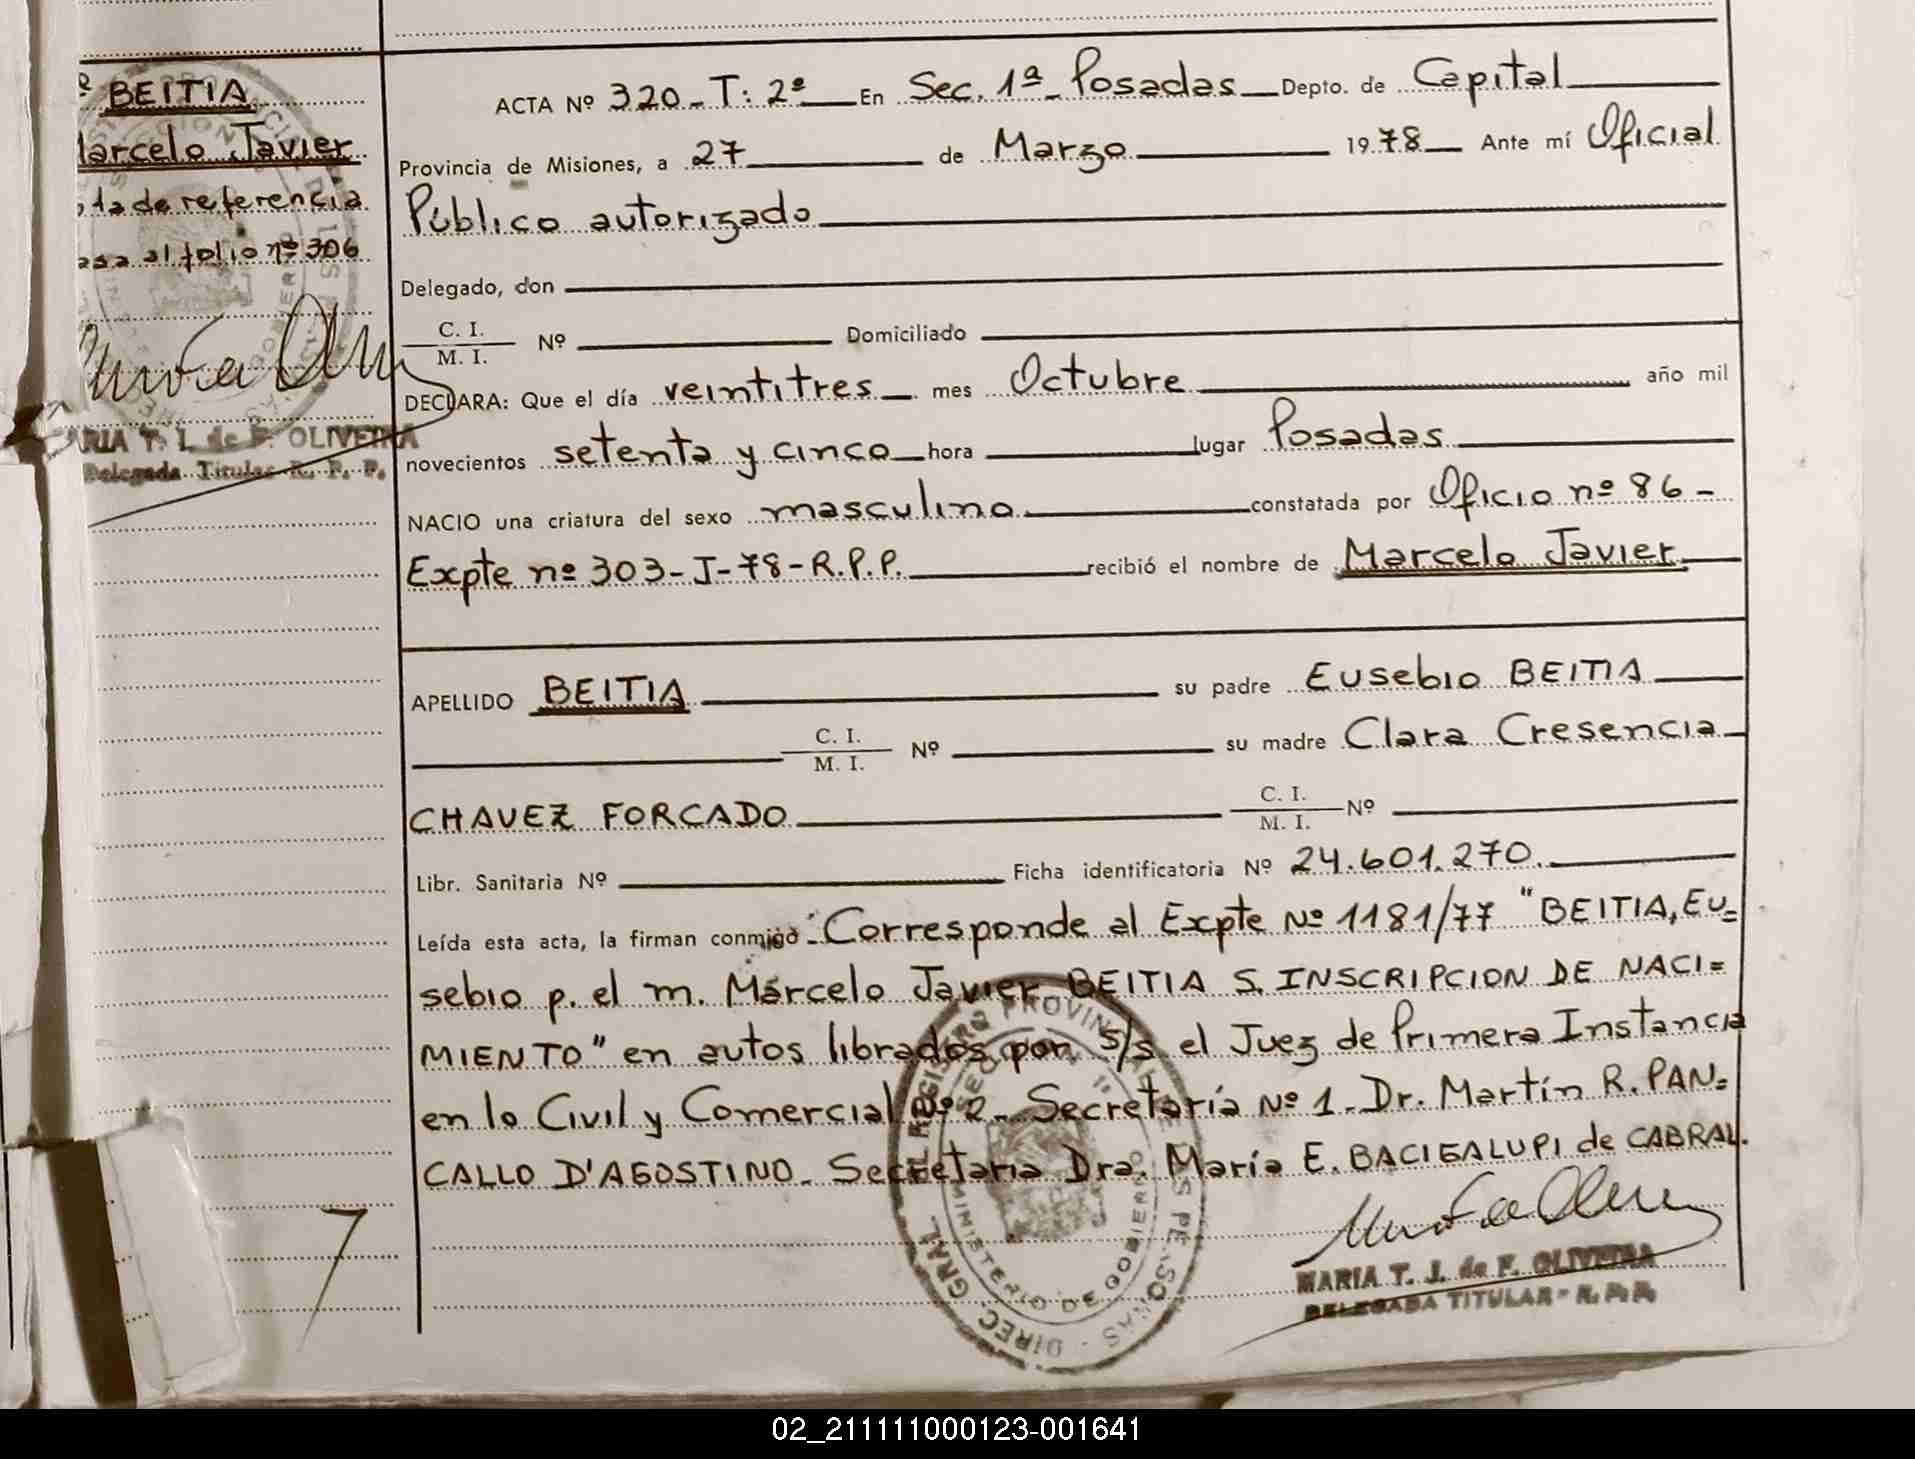 BEITIA
Marcelo Javier
ta de referencia
asa al folio nº 306
MARIA T. J. de F. OLIVEIRA
Delegada Titular R. P. P.
ACTA Nº 320 - T: 2º En Sec. 1ª Posadas Depto. de Capital
Provincia de Misiones, a 27 de Marzo 1978 Ante mí Oficial
Público autorizado
Delegado, don
C. I.
M. I. Nº Domiciliado
DECLARA: Que el día veintitres mes Octubre año mil
novecientos setenta y cinco hora lugar Posadas
NACIO una criatura del sexo masculino constatada por Oficio nº 86 -
Expte nº 303-J-78-R.P.P. recibió el nombre de Marcelo Javier
APELLIDO BEITIA su padre Eusebio BEITIA
C. I.
M. I. Nº su madre Clara Cresencia
CHAVEZ FORCADO C. I.
M. I. Nº
Libr. Sanitaria Nº Ficha identificatoria Nº 24.601.270.
Leída esta acta, la firman conmigo: Corresponde al Expte Nº 1181/77 "BEITIA, Eu=
sebio p. el m. Marcelo Javier BEITIA S. INSCRIPCION DE NACI=
MIENTO" en autos librados por S/S el Juez de Primera Instancia
en lo Civil y Comercial Nº 2 - Secretaría Nº 1 - Dr. Martín R. PAN=
CALLO D'AGOSTINO. Secretaria Dra. María E. BACIGALUPI de CABRAL.
DIREC. GRAL. DEL REGISTRO PROVINCIAL DE LAS PERSONAS
MINISTERIO DE GOBIERNO
MARIA T. J. de F. OLIVEIRA
DELEGADA TITULAR - R. P. P.
02_211111000123-001641